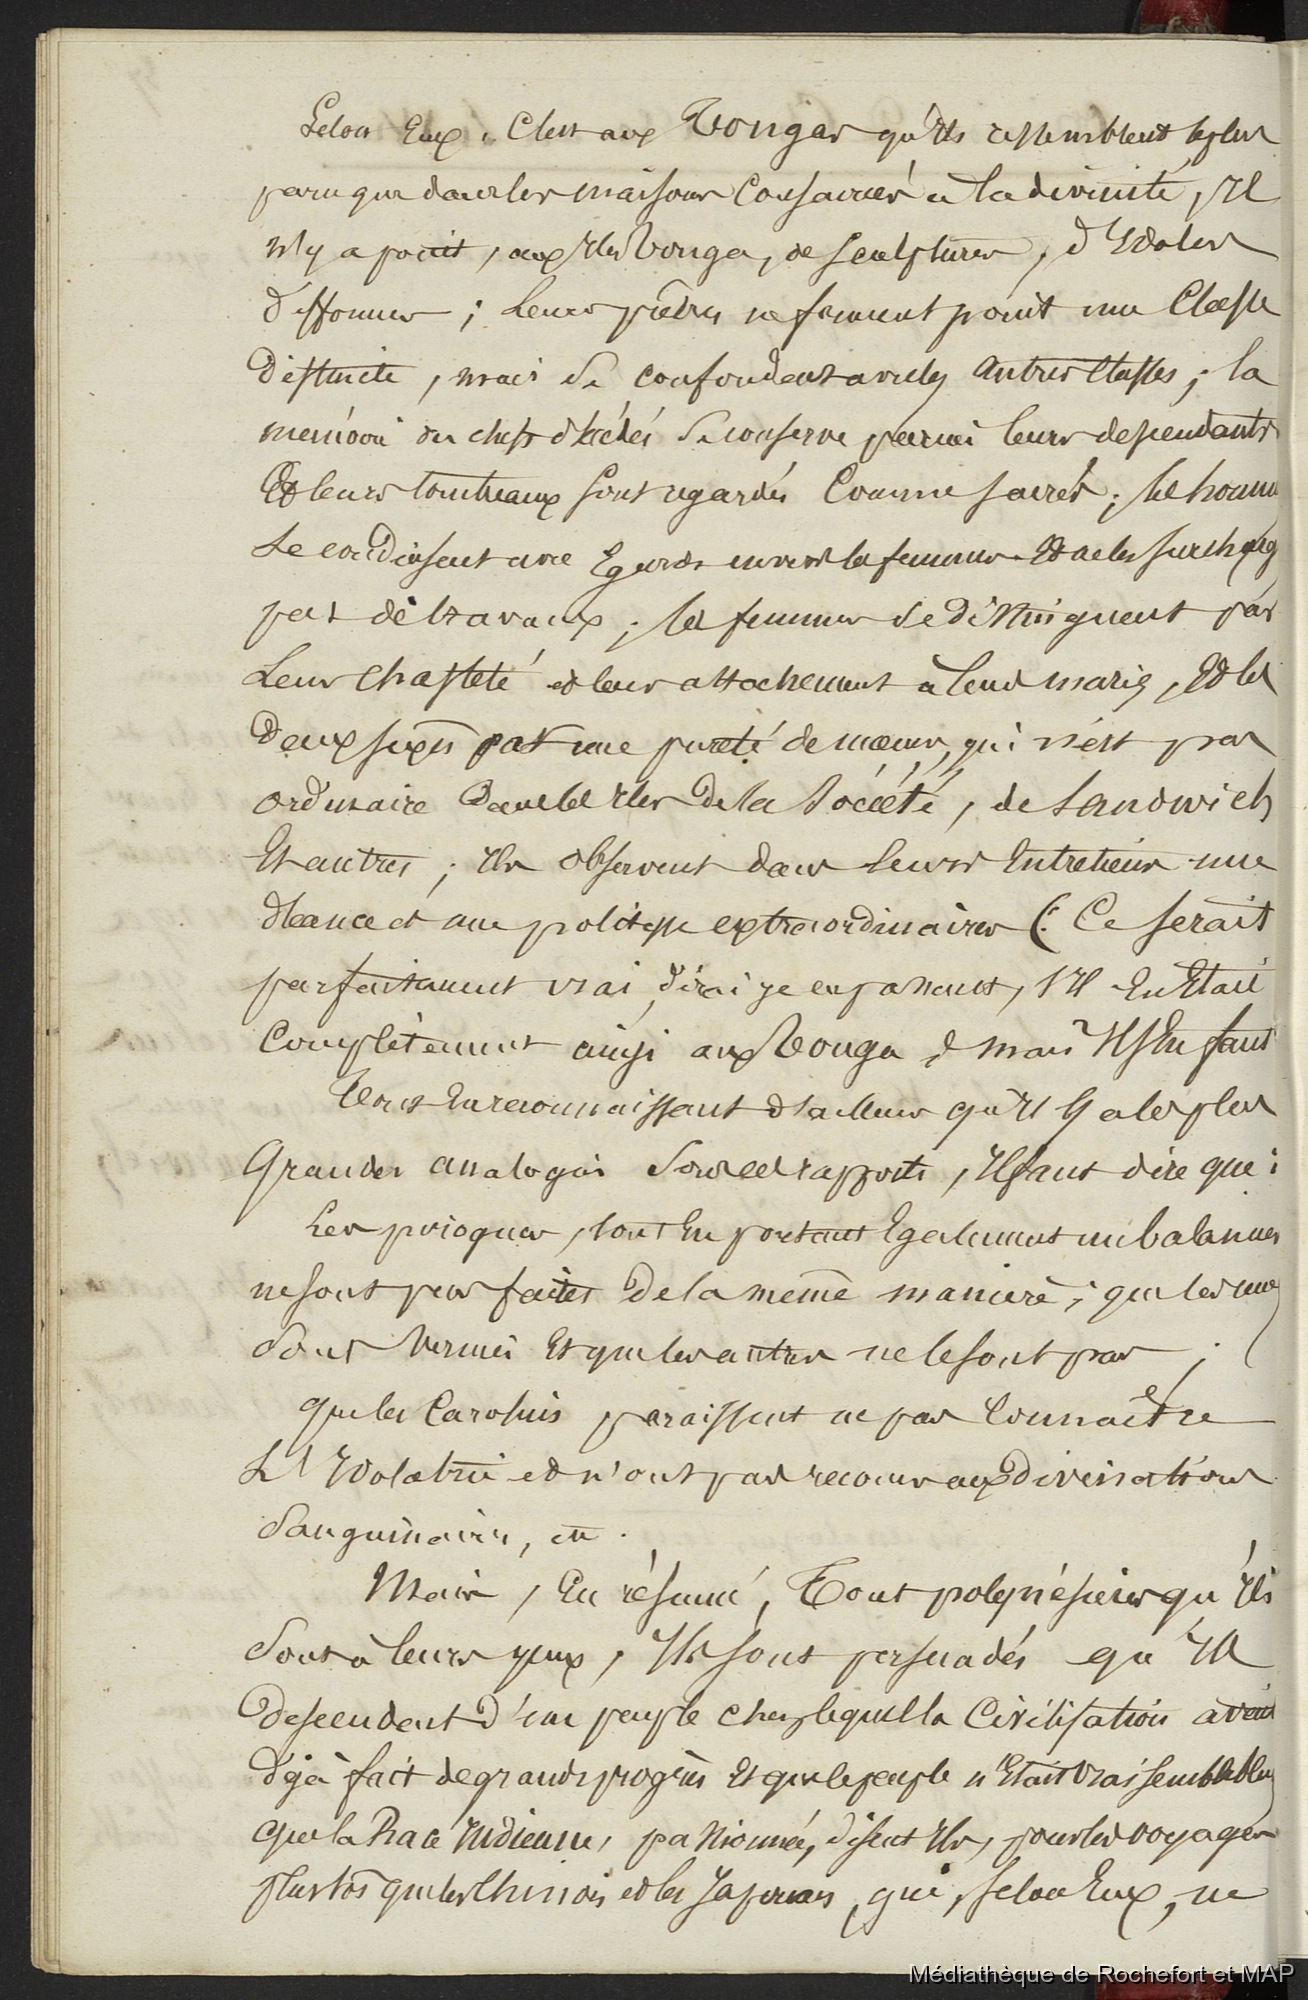 Selon Eux, C'est aux Tongas qu'Ils ressemblent le plus
parce que dans les maisons Consacrées à la divinité, Il
n'y a point, aux Iles Tonga, de Sculptures, d'Idoles
d'Hommes ; Leurs prêtres ne forment point une Classe
distincte, mais Se confondent avec les Autres Classes ; la
mémoire des chefs décédés Se conserve parmi leurs descendants
Et leurs tombeaux Sont regardés Comme Sacrés ; les hommes
Se conduisent avec Egards envers les femmes Et ne les surchargent
pas de travaux ; les femmes Se distinguent par
Leur Chasteté et leur attachement à leurs maris, Et les
Deux Sexes par une pureté de mœurs, qui n'est pas
ordinaire Dans les Iles De la Société, de Sandwich
Et autres ; Ils observent dans leurs Entretiens une
décence et une politesse extraordinaires (: Ce serait
parfaitement vrai, dirai je en passant, s'Il En Etait
Complètement ainsi aux Tonga, mais Il s'En faut
Tout En reconnaissant d'ailleurs qu'Il y a les plus
Grandes analogies Sous ces rapports, Il faut dire que :
Les pirogues, tout En portant Egalement un balancier
ne sont pas faites De la même manière ; que les unes
Sont Vernies Et que les autres ne le sont pas ;
Que les Carolins paraissent ne pas Connaître
L'Idolatrie et n'ont pas recours aux divinations
Sanguinaires, etc.
Mais, En résumé, Tout polynésiens qu'Ils
Sont à leurs yeux, Ils sont persuadés qu'Ils
Descendent d'un peuple chez lequel la Civilisation avait
déjà fait de grands progrès Et que le peuple n'Etait vraisemblablement
que la Race Indienne, passionnée, disent Ils, pour les voyages
plustôt que les Chinois et les Japonais, qui, selon Eux, ne
Médiathèque de Rochefort et MAP